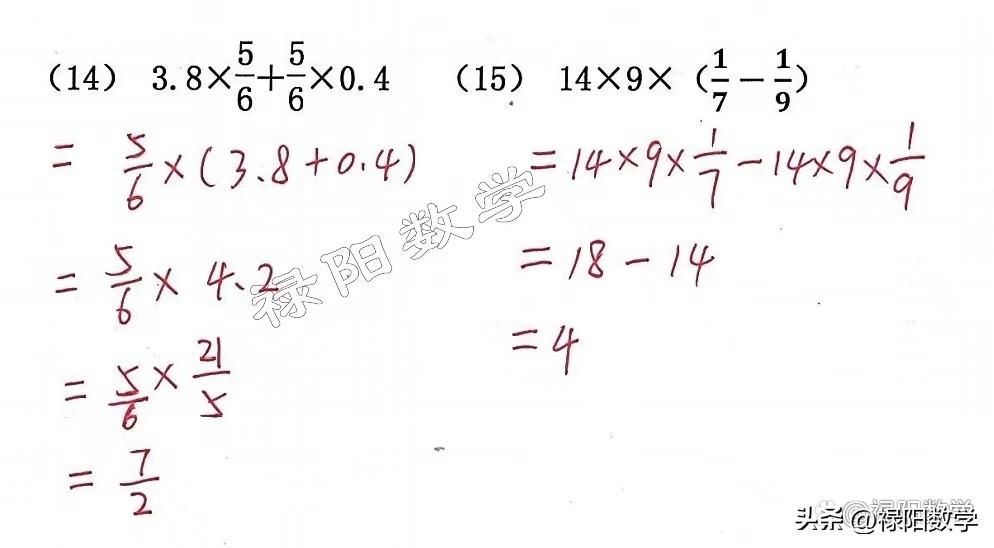 (14) 3.8×5/6+5/6×0.4
= 5/6×(3.8+0.4)
= 5/6× 4.2
= 5/6×21/5
= 7/2
(15) 14×9×(1/7－1/9)
=14×9×1/7－14×9×1/9
=18－14
=4
禄阳数学
头条 @禄阳数学